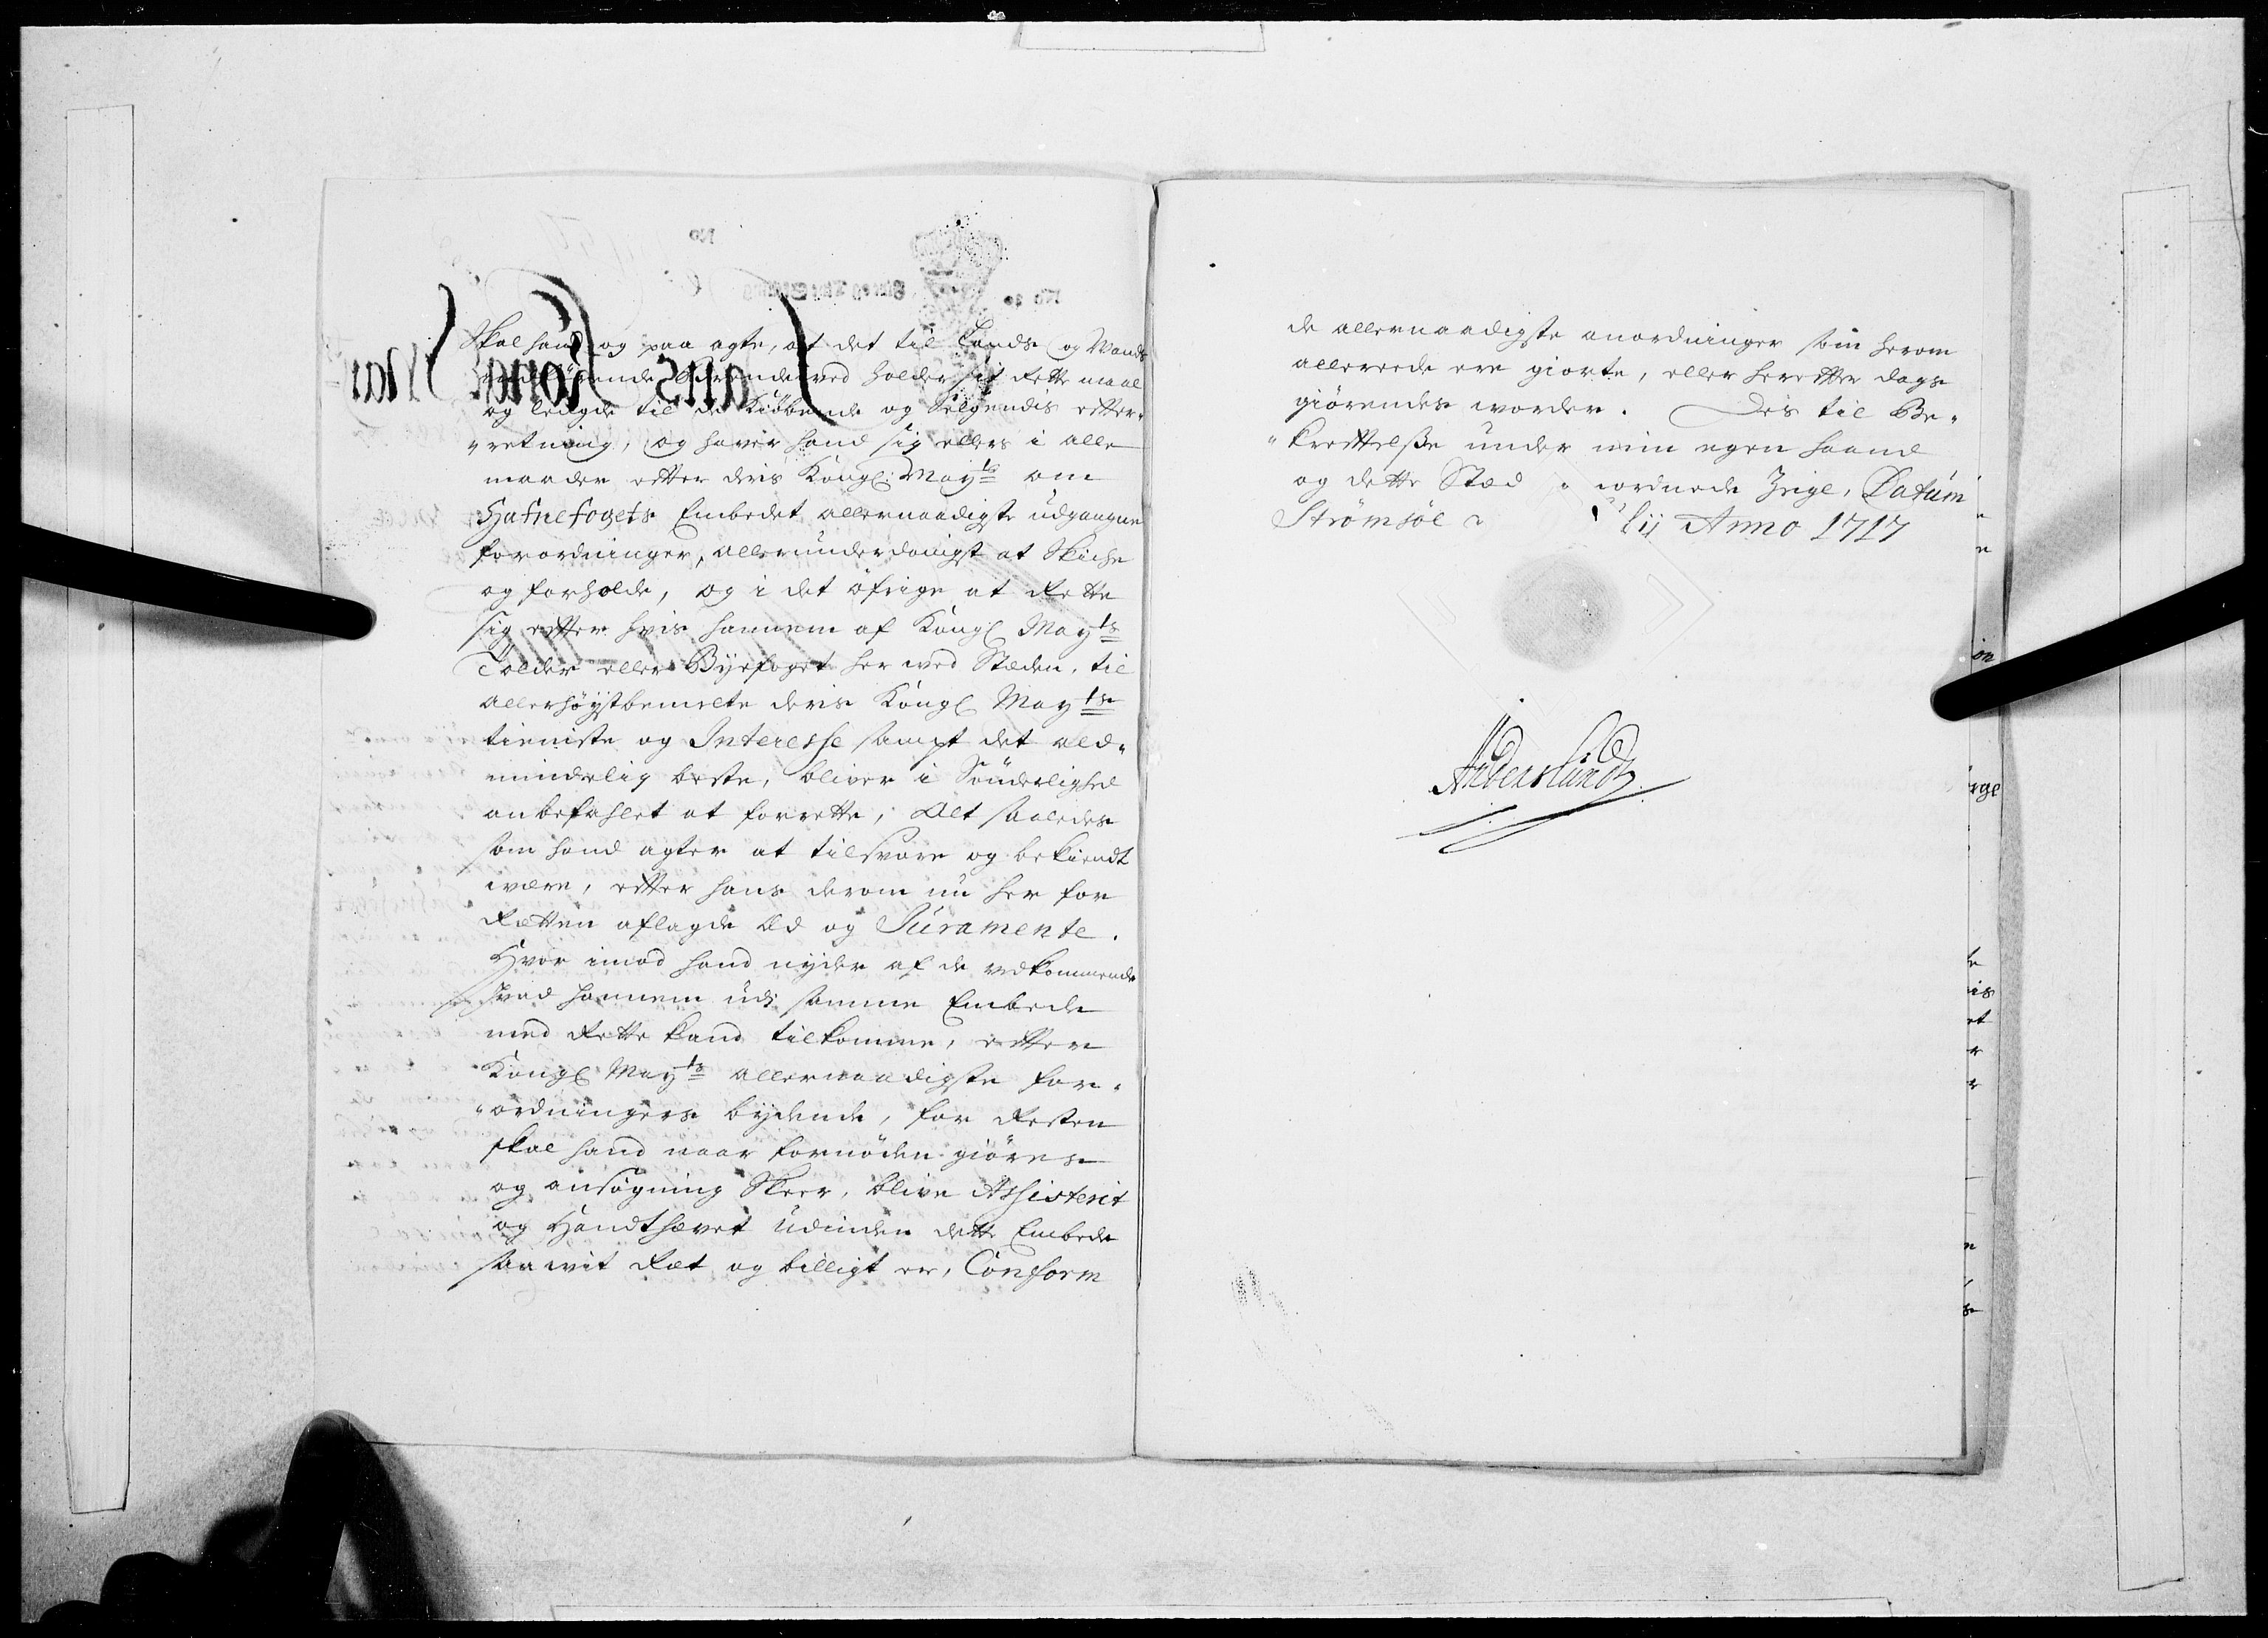 Skal hand og paa agte, at det til Lands og Wands
ved holder sit rette maal
og lengde til de Kiöbende og Selgendis effter-
"retning, og haver hand sig ellers i alle
maader effter deris Kongl: Mayts om
Hafnefogets Embedet allernaadigste udgangne
forordninger, allerunderdanigst at Skiche
og forholde, og i det öfrige at rette
sig effter hvis hannem af Kongl Mayts
Tolder eller Byefoget her ved Stæden, til
allerhöystbemelte deris Kongl Mayts
tieniste og Interesse sampt det ald-
mindelig beste, bliver i Sönderlighed
anbefahlet at forrette, Alt saaledes
som hand agter at tilsvare og bekiendt
være, effter hans derom nu her for
Retten aflagde Æd og Juramente.
Hvor imod hand nyder af de vedkommende
hvad hannem udj samme Embede
med rette kand tilkomme, effter
Kongl Mayts allernaadigste for-
"ordningers bydende, for resten
skal hand naar fornöden giöres
og ansögning Skeer, blive Assisterit
og Handthævet udinden dette Embede
saa vit ret og billigt er, Conform
de allernaadigste anordninger som herom
allerede ere giorte, eller hereffter dags
giörendes vorder. Dis til Be-
"krefftelsse under min egen haand
og dette Stæd ordnede Zeigl, Datum
Strömsöe lij Anno 1717
Anders Lund